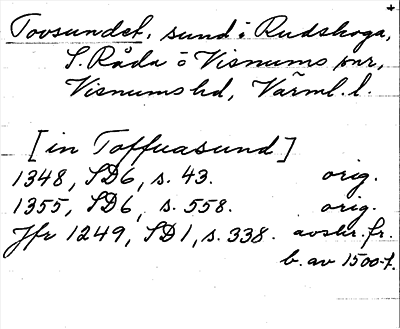 +
Tovsundet, sund i Rudskoga,
S. Råda o Visnums snr,
Visnums hd, Värml. l.
[in Toffuasund]
1348, SD6, s. 43. orig.
1355, SD6, s. 558. orig.
Jfr 1249, SD1, s. 338. avskr. fr.
b. av 1500-t.